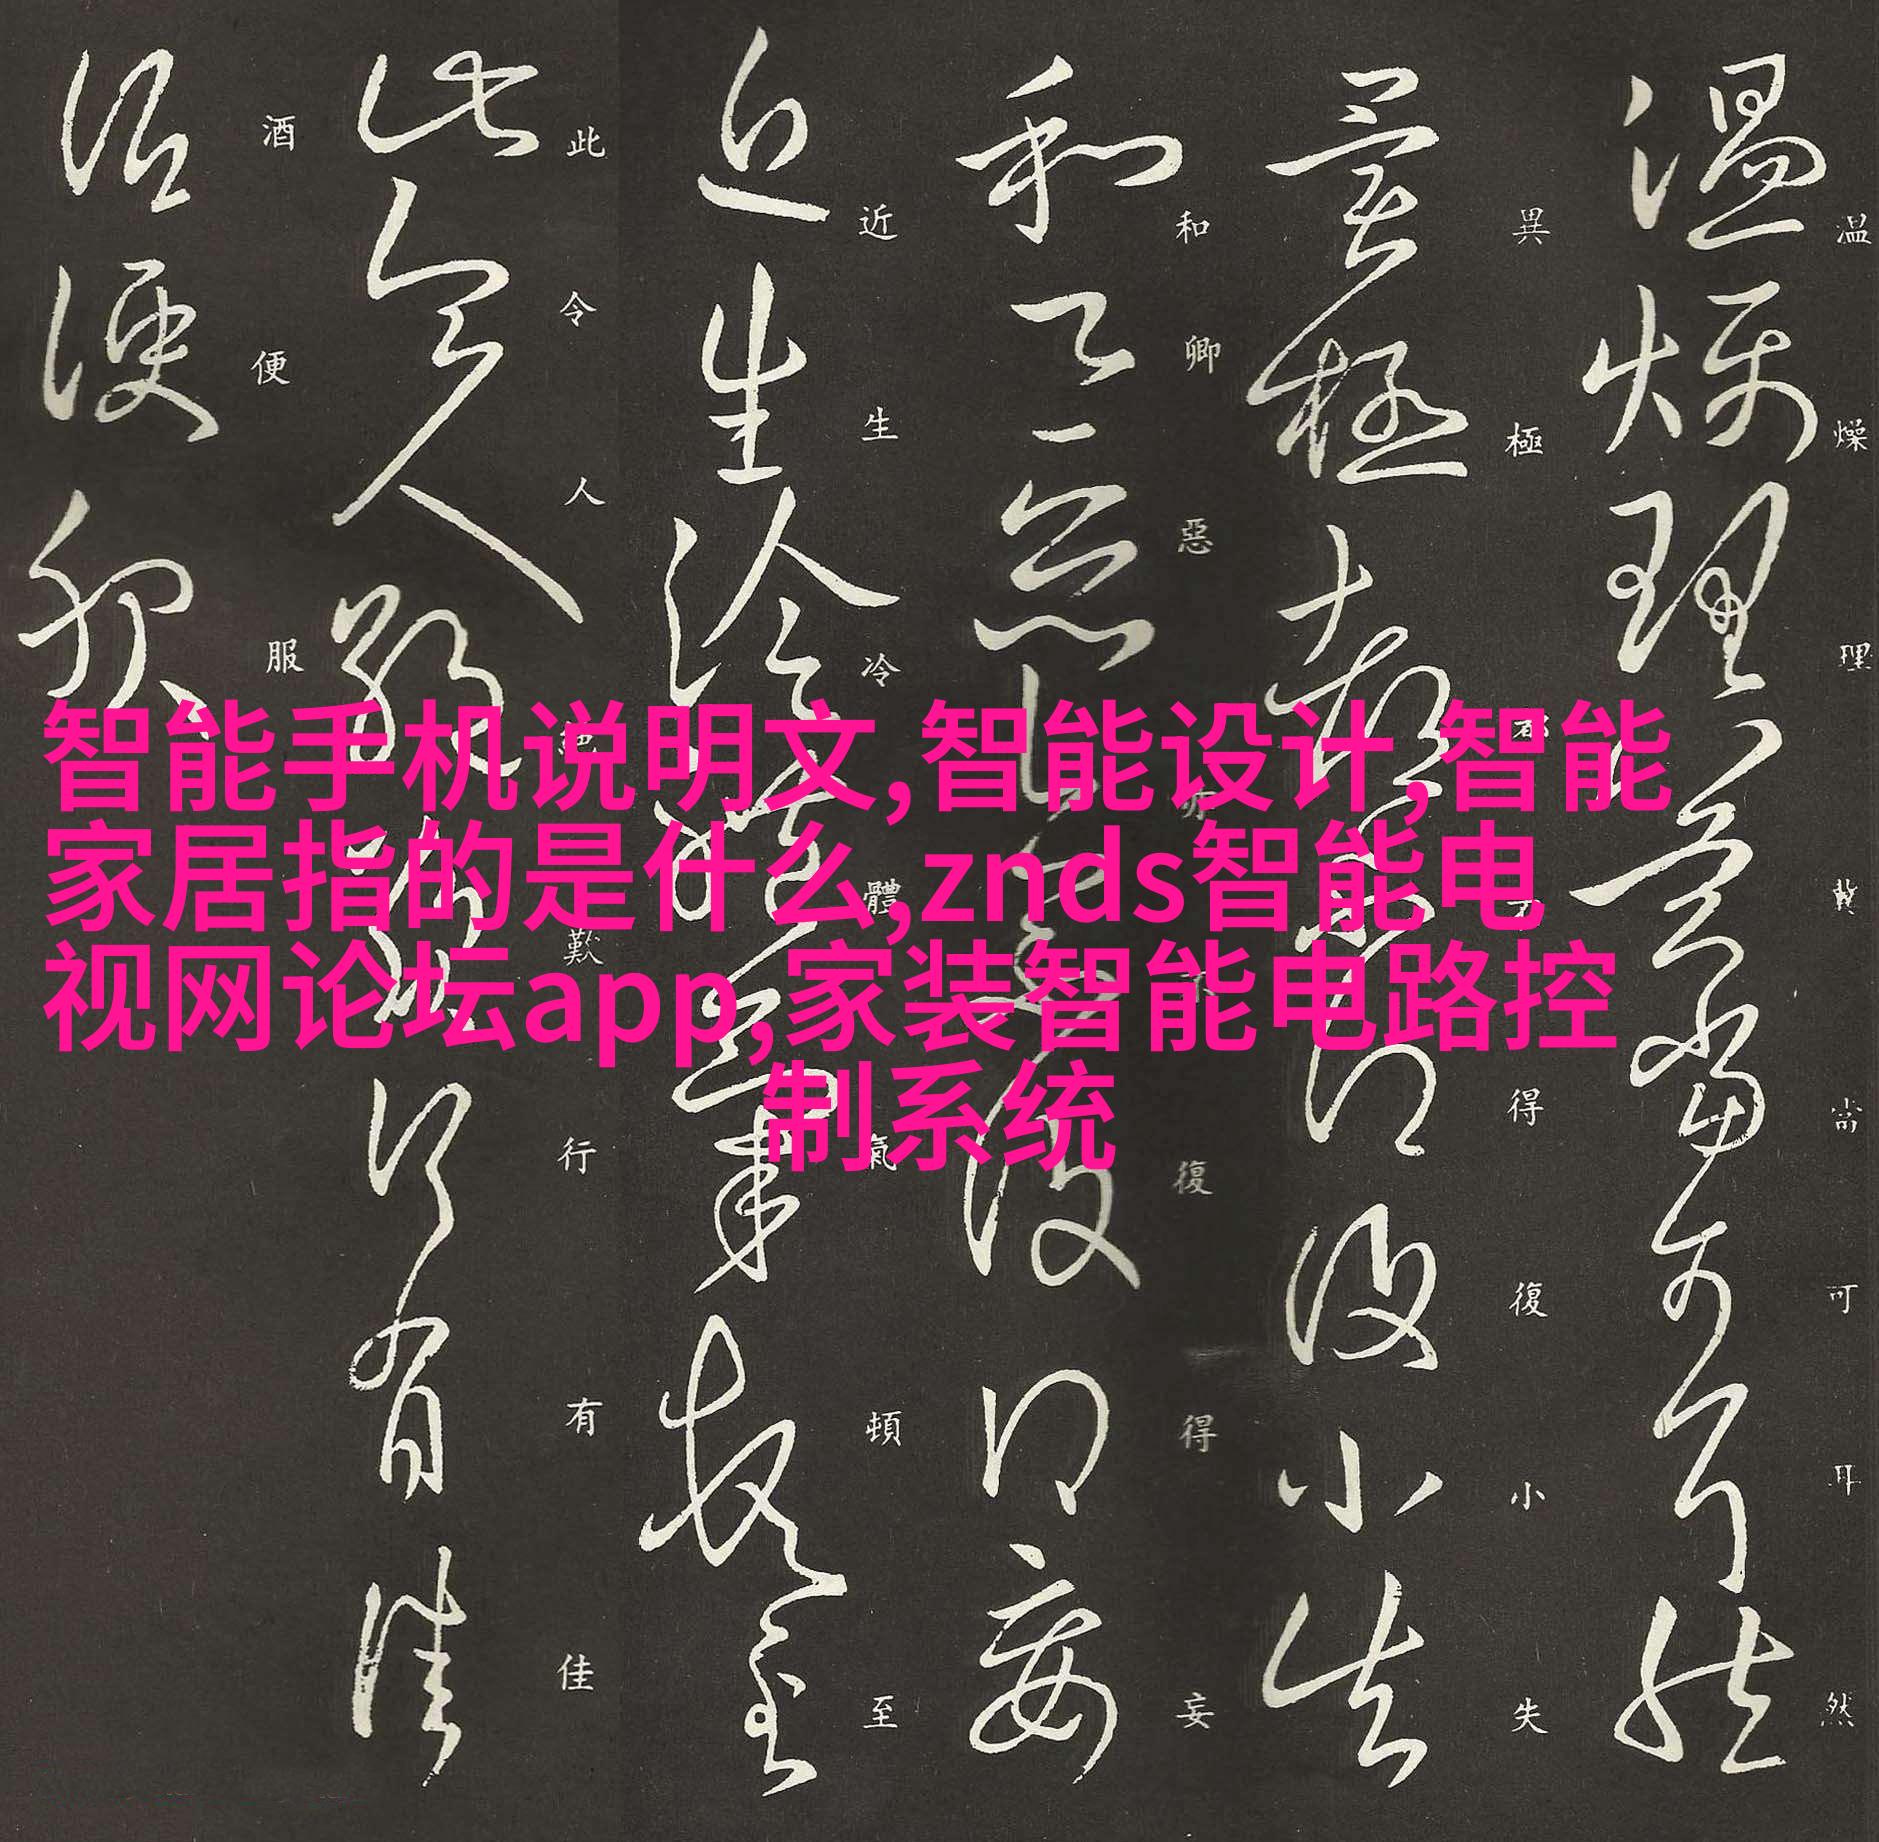 智能手机说明文,智能设计,智能
家居指的是什么,znds智能电
视网论坛app,家装智能电路控
制系统
温燥理冀當可耳然
異極都不得復小失
和卿惡亦不復得妄
近生冷體氣頓至
此令人絶歎行有佳
酒便服